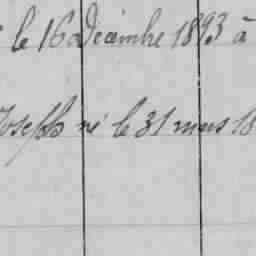 le 16 Décembre 1893 à
Joseph né le 31 mars 18